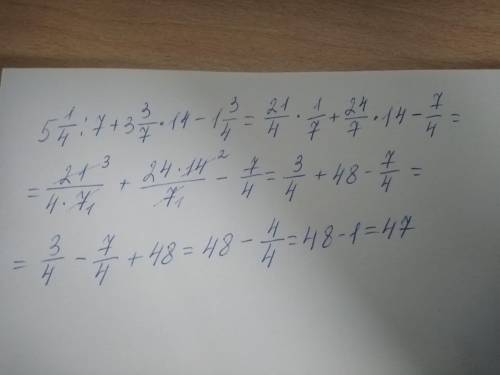 5 1/4 : 7 + 3 3/7 · 14 − 1 3/4 = 21/4 · 1/7 + 24/7 · 14 − 7/4 =
= 21 3/4·7 1 + 24·14 2/7 1 − 7/4 = 3/4 + 48 − 7/4 =
= 3/4 − 7/4 + 48 = 48 − 4/4 = 48 − 1 = 47